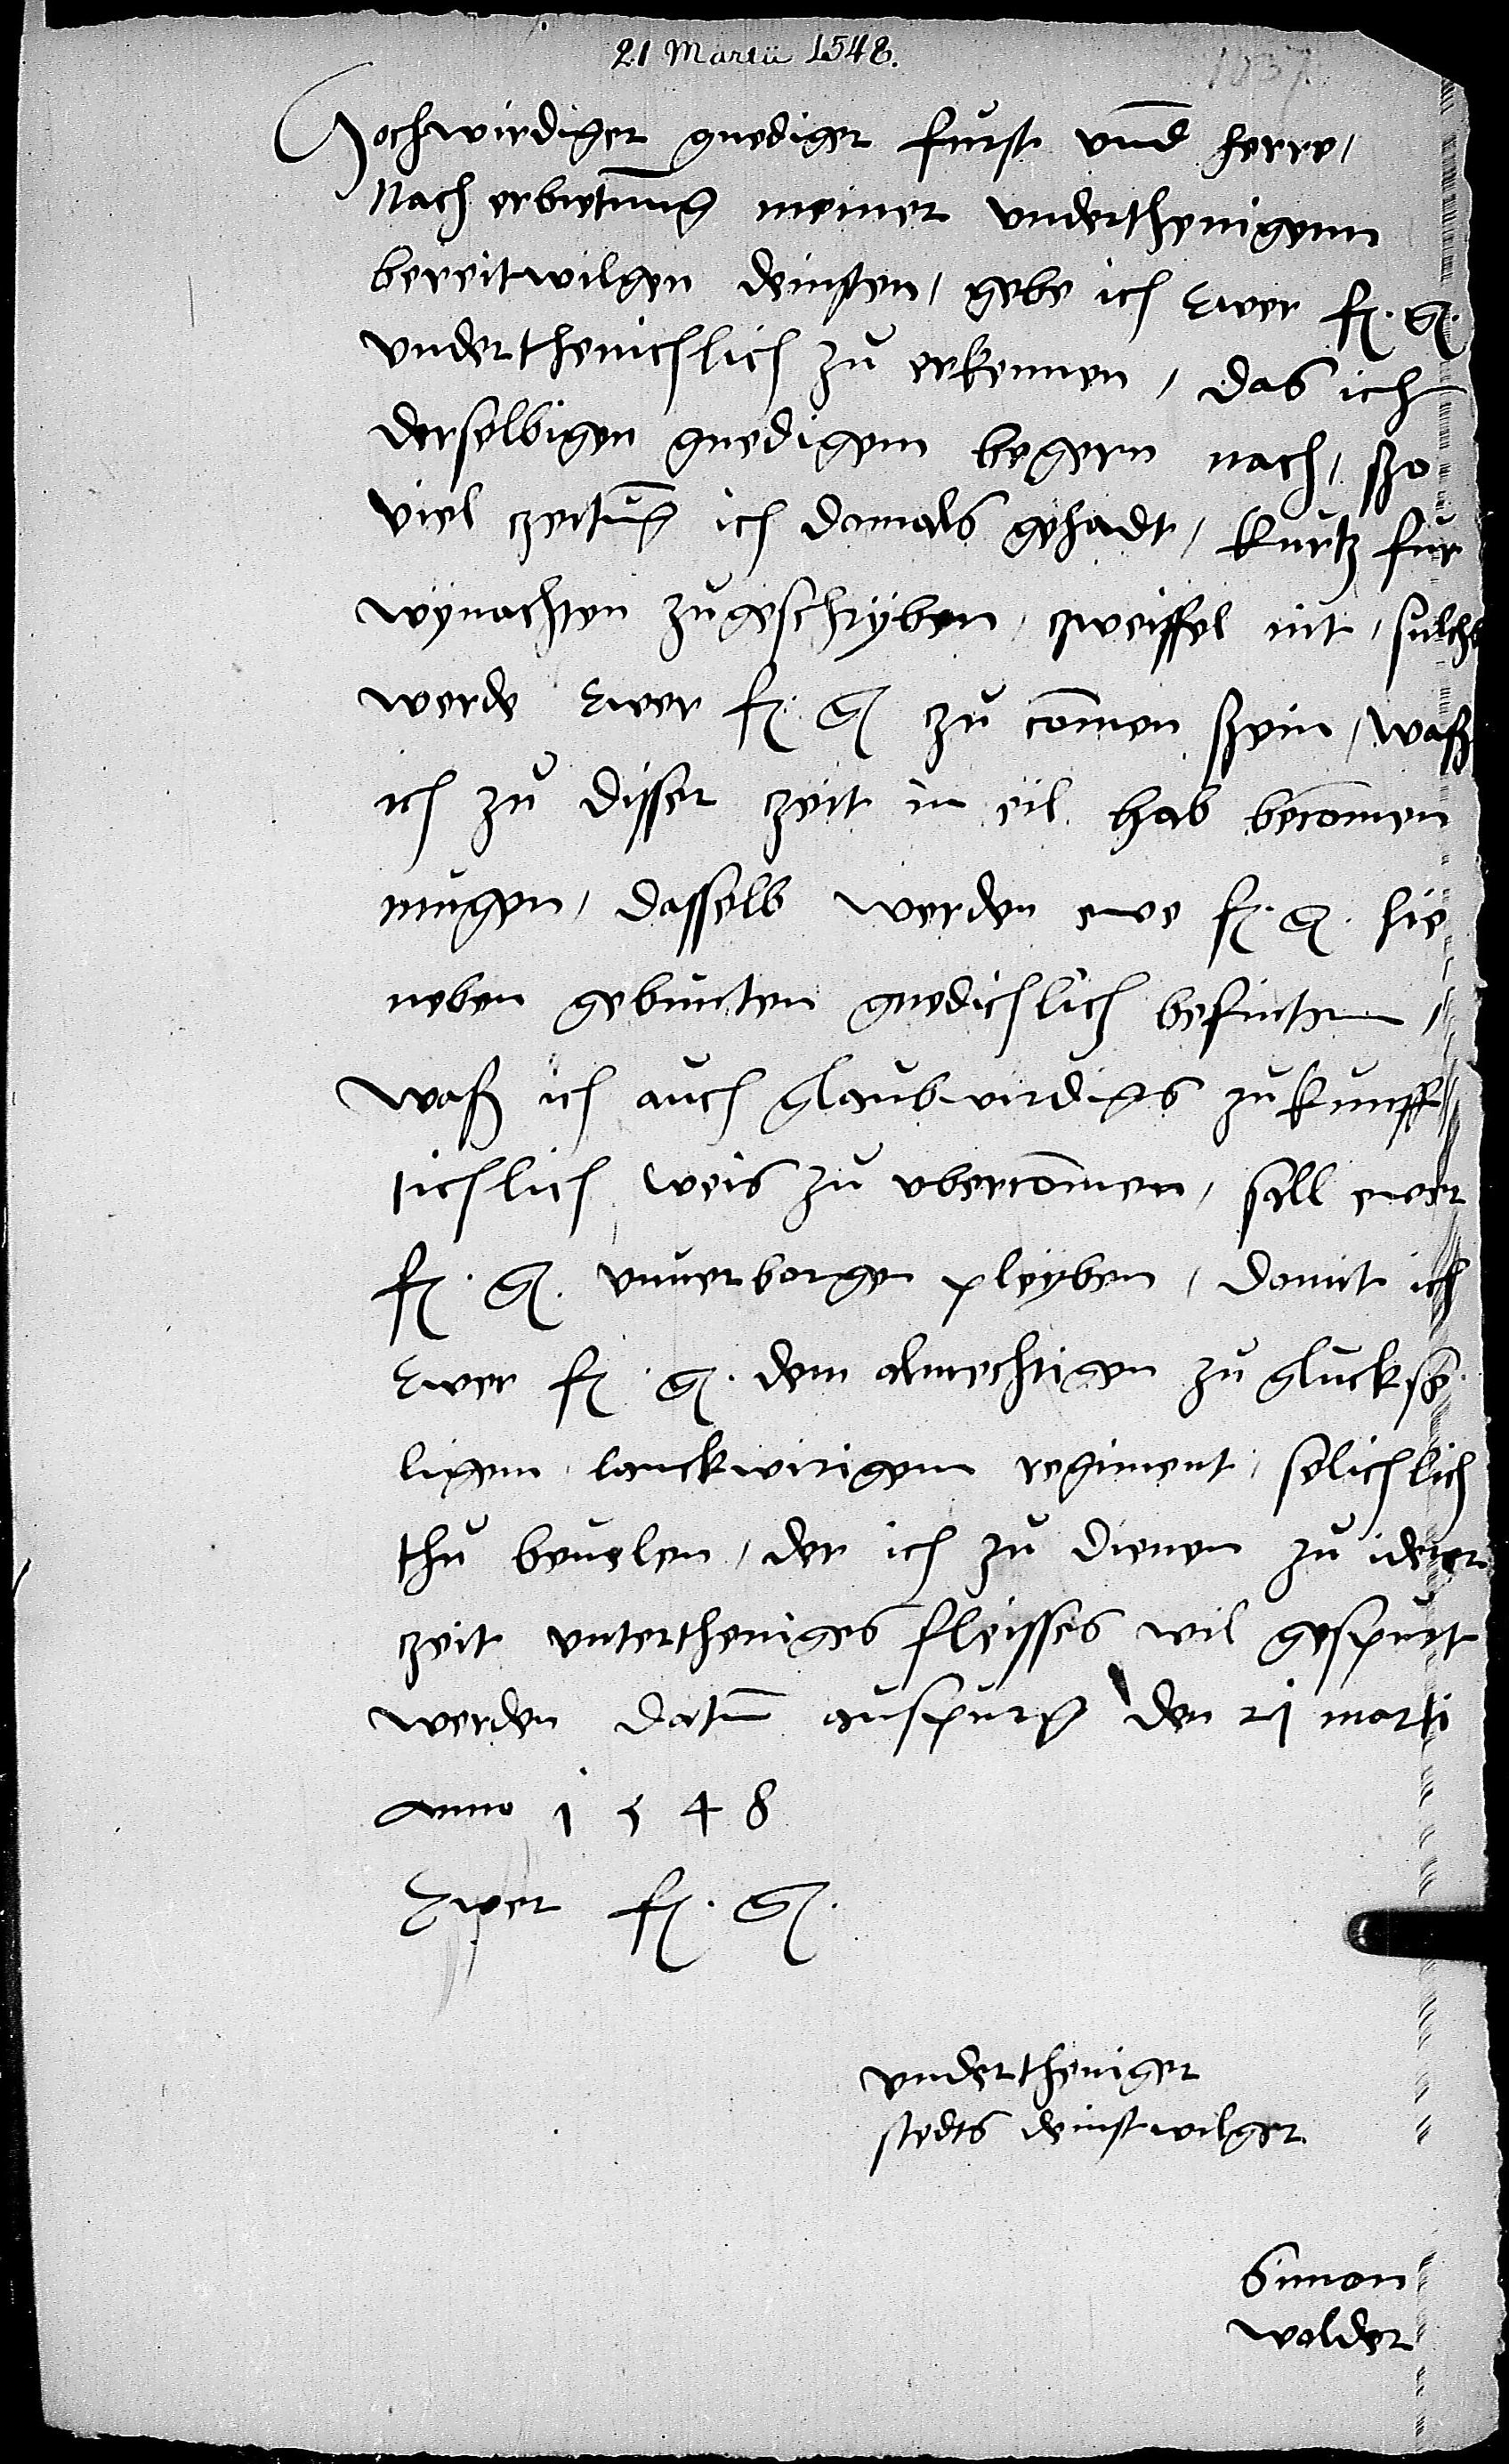 21 Martii 1548.
1837
Hochwirdiger gnediger furst vnd herre,
Nach erbietung meiner vnderthenigenn
bereitwilgen deinsten, gebe ich Ewer f. G.
vnderthenichlich zu erkennen, das ich
derselbigen gnedigem begern nach, szo
viel zceitung ich domals gehadt, kurtz fur
wynachten zugeschryben, zweiffel nit, sulchs
werde Ewer f. G zu comen szein, waß
ich zu disser zceit in eil hab becomen
mugen, dasselb werden ewe f. G. hie
neben gebunten gnedichlich befinten,
waß ich auch glaubwirdigs zukunff
tichlich weis zu vbercomen, sall ewer
f. G. vnuerborgen pleyben, domit ich
Ewer f. G. dem almechtigen zu gluckse
ligem lanckwirigem regiment, selichlich
thu beuelen, der ich zu dienen zu ider
zceit vntertheniges fleisses wil gespurt
werden Datum auspurg den 21 marti
Anno 1548
Ewer f. G.
vndertheniger
stedts deinstwilger
Simon
wolder